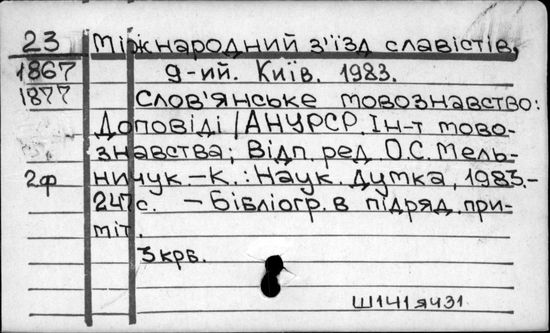 23 Міжнародний з'їзд славістів,
1867 9-ий. Київ. 1983.
1877 Слов'янське мовознавство:
Доповіді/АНУРСР. Ін-т мово-
знавства; Відп. ред. О.С. Мель-
2ф ничук. – К.: Наук. думка, 1983.-
247с. – Бібліогр. в підряд. при-
міт.
3 крб.
Ш141я431